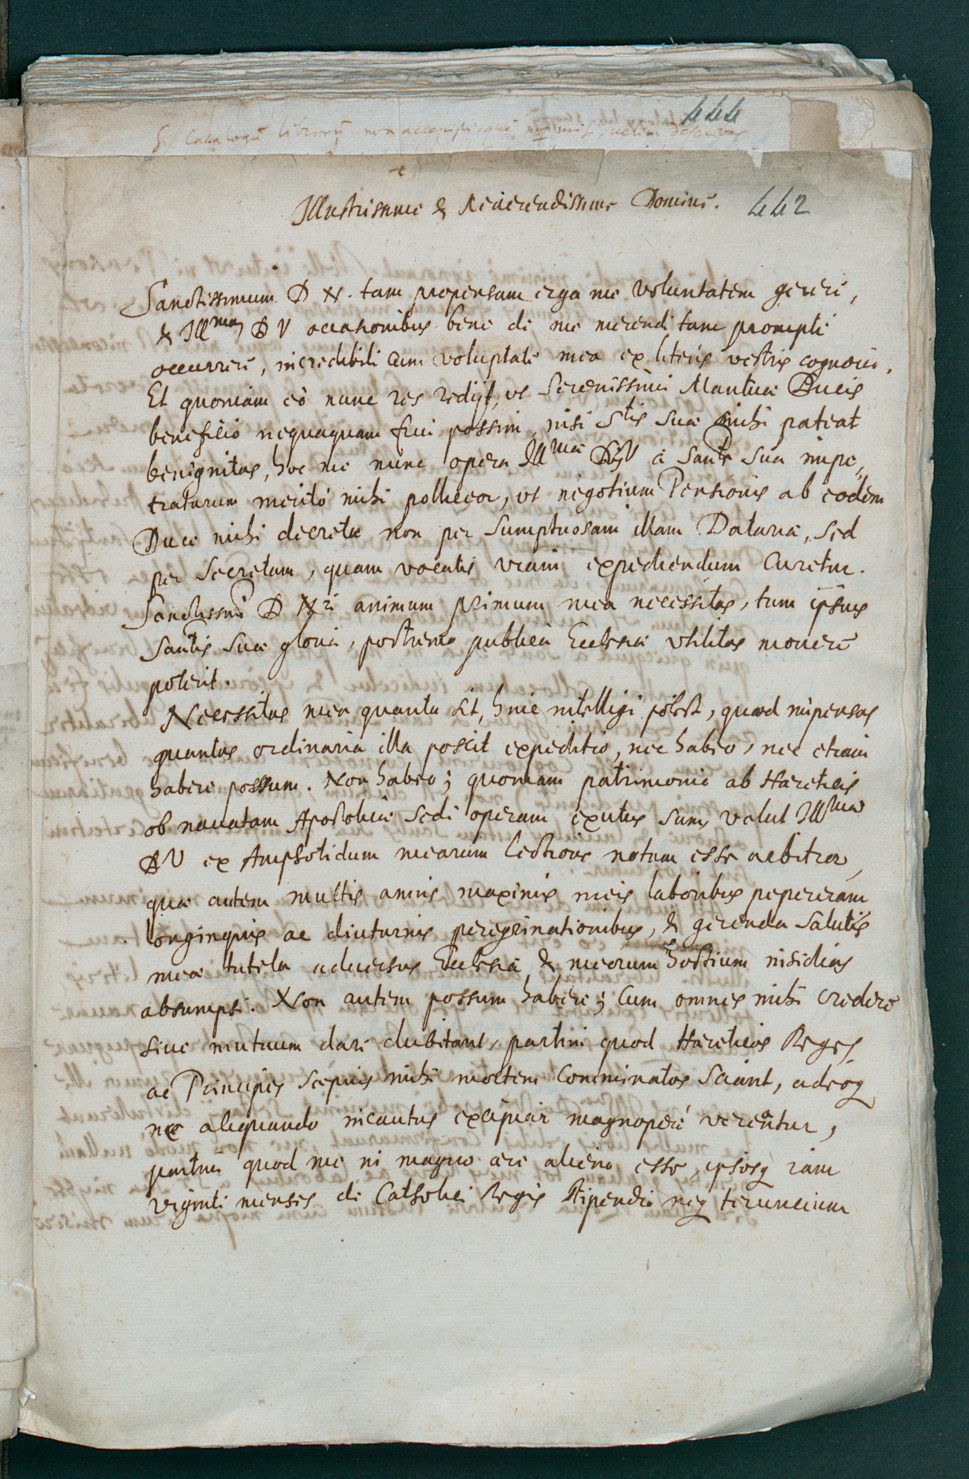 444
Illustrissime & Reverendissime Domine.
442
Sanctissimum D N. tam propensam erga me voluntatem gerere,
& Illmam DV occasionibus bene de me merendi tam prompte
occurrere, incredibili cum voluptate mea ex literis vestris cognovi.
Et quoniam eò nunc res redijt, ut Serenissimi Mantuæ Ducis
beneficio nequaquam frui possim, nisi Stis Suæ mihi pateat
benignitas, hoc me nunc opera Illmæ DV à Sante Sua impe,
traturum meritò mihi polliceor, ut negotium Pensionis ab eodem
Duce mihi decretæ non per sumptuosam illam Datariæ, sed
per Secretam, quam vocatis viam expediendum curetur.
Sanctissimi D Nri animum primum mea necessitas, tum ipsius
Santis Suæ gloria, postremo publica Ecclesiæ utilitas movere
poterit.
Necessitas mea quanta sit, hinc intelligi potest, quod impensas
quantas ordinaria illa poscit expeditio, nec habeo, nec etiam
habere possum. Non habeo; quoniam patrimonio ab Hæreticis
ob navatam Apostolicæ Sedi operam exutus sum, velut Illmæ
DV ex Amphotidum mearum lectione notum esse arbitror,
quæ autem multis annis maximis meis laboribus pepereram
longinquis ac diuturnis peregrinationibus, & gerenda salutis
meæ tutela adversus Ecclesiæ, & meorum hostium insidias
absumpsi. Non autem possum habere; cum omnes mihi credere
sive mutuum dare dubitant, partim quod Hæreticos Reges,
ac Principes sæpius mihi mortem comminatos sciant, adeoq
ne aliquando incautus excipiar magnoperè verentur,
partim quod me in magno ære alieno esse, ipsosq iam
viginti menses de Catholici Regis stipendio neq teruncium